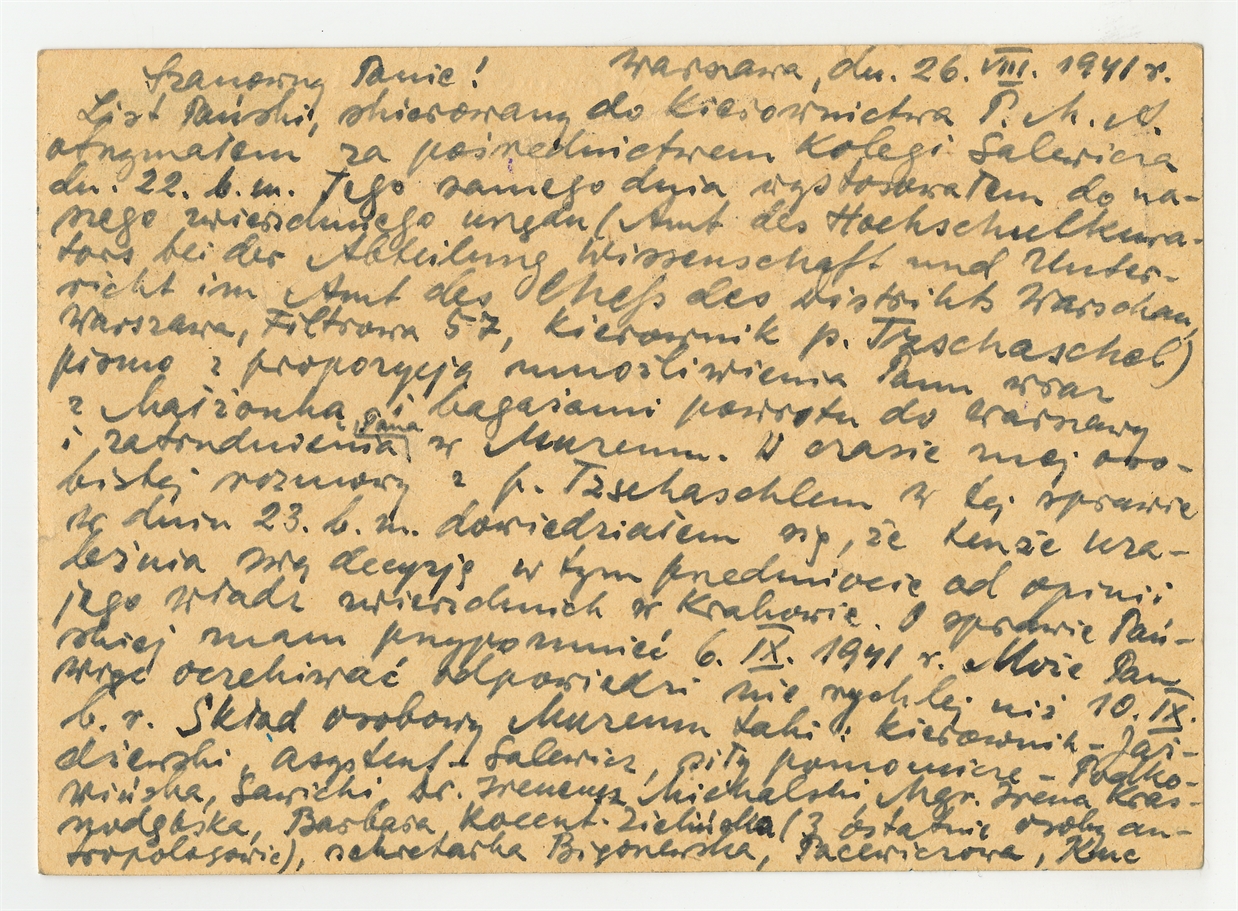 Szanowny Panie! Warszawa, dn. 26. VIII. 1941 r.
List Pański, skierowany do Kierownictwa P. M. A.
otrzymałem za pośrednictwem Kolegi Salewicza
dn. 22. b. m. Tego samego dnia wystosowałem do na-
szego zwierzchniego urzędu (Amt des Hochschulkura-
tors bei der Abteilung Wissenschaft und Unter-
richt im Amt des Chefs des Distrikts Warschau,
Warszawa, Filtrowa 57, kierownik p. Tzschaschel)
pismo z propozycją umożliwienia Panu wraz
z Małżonką i bagażami powrotu do Warszawy
i zatrudnienia Pana w Muzeum. W czasie mej oso-
bistej rozmowy z p. Tzschaschlem w tej sprawie
w dniu 23. b. m. dowiedziałem się, że tenże uza-
leżnia swą decyzję w tym przedmiocie od opinii
jego władz zwierzchnich w Krakowie. O sprawie Pań-
skiej mam przypomnieć 6. IX. 1941 r. Może Pan
więc oczekiwać odpowiedzi nie rychlej niż 10. IX.
b. r. Skład osobowy Muzeum taki: kierownik - Jaż-
dżewski, asystent - Salewicz, siły pomocnicze - Podko-
wińska, Sawicki, Dr. Ireneusz Michalski, Mgr. Irena Kras-
nodębska, Barbara Kocent-Zielińska (3 ostatnie osoby an-
tropologowie), sekretarka Bigoszewska, Pacewiczowa, Kuc